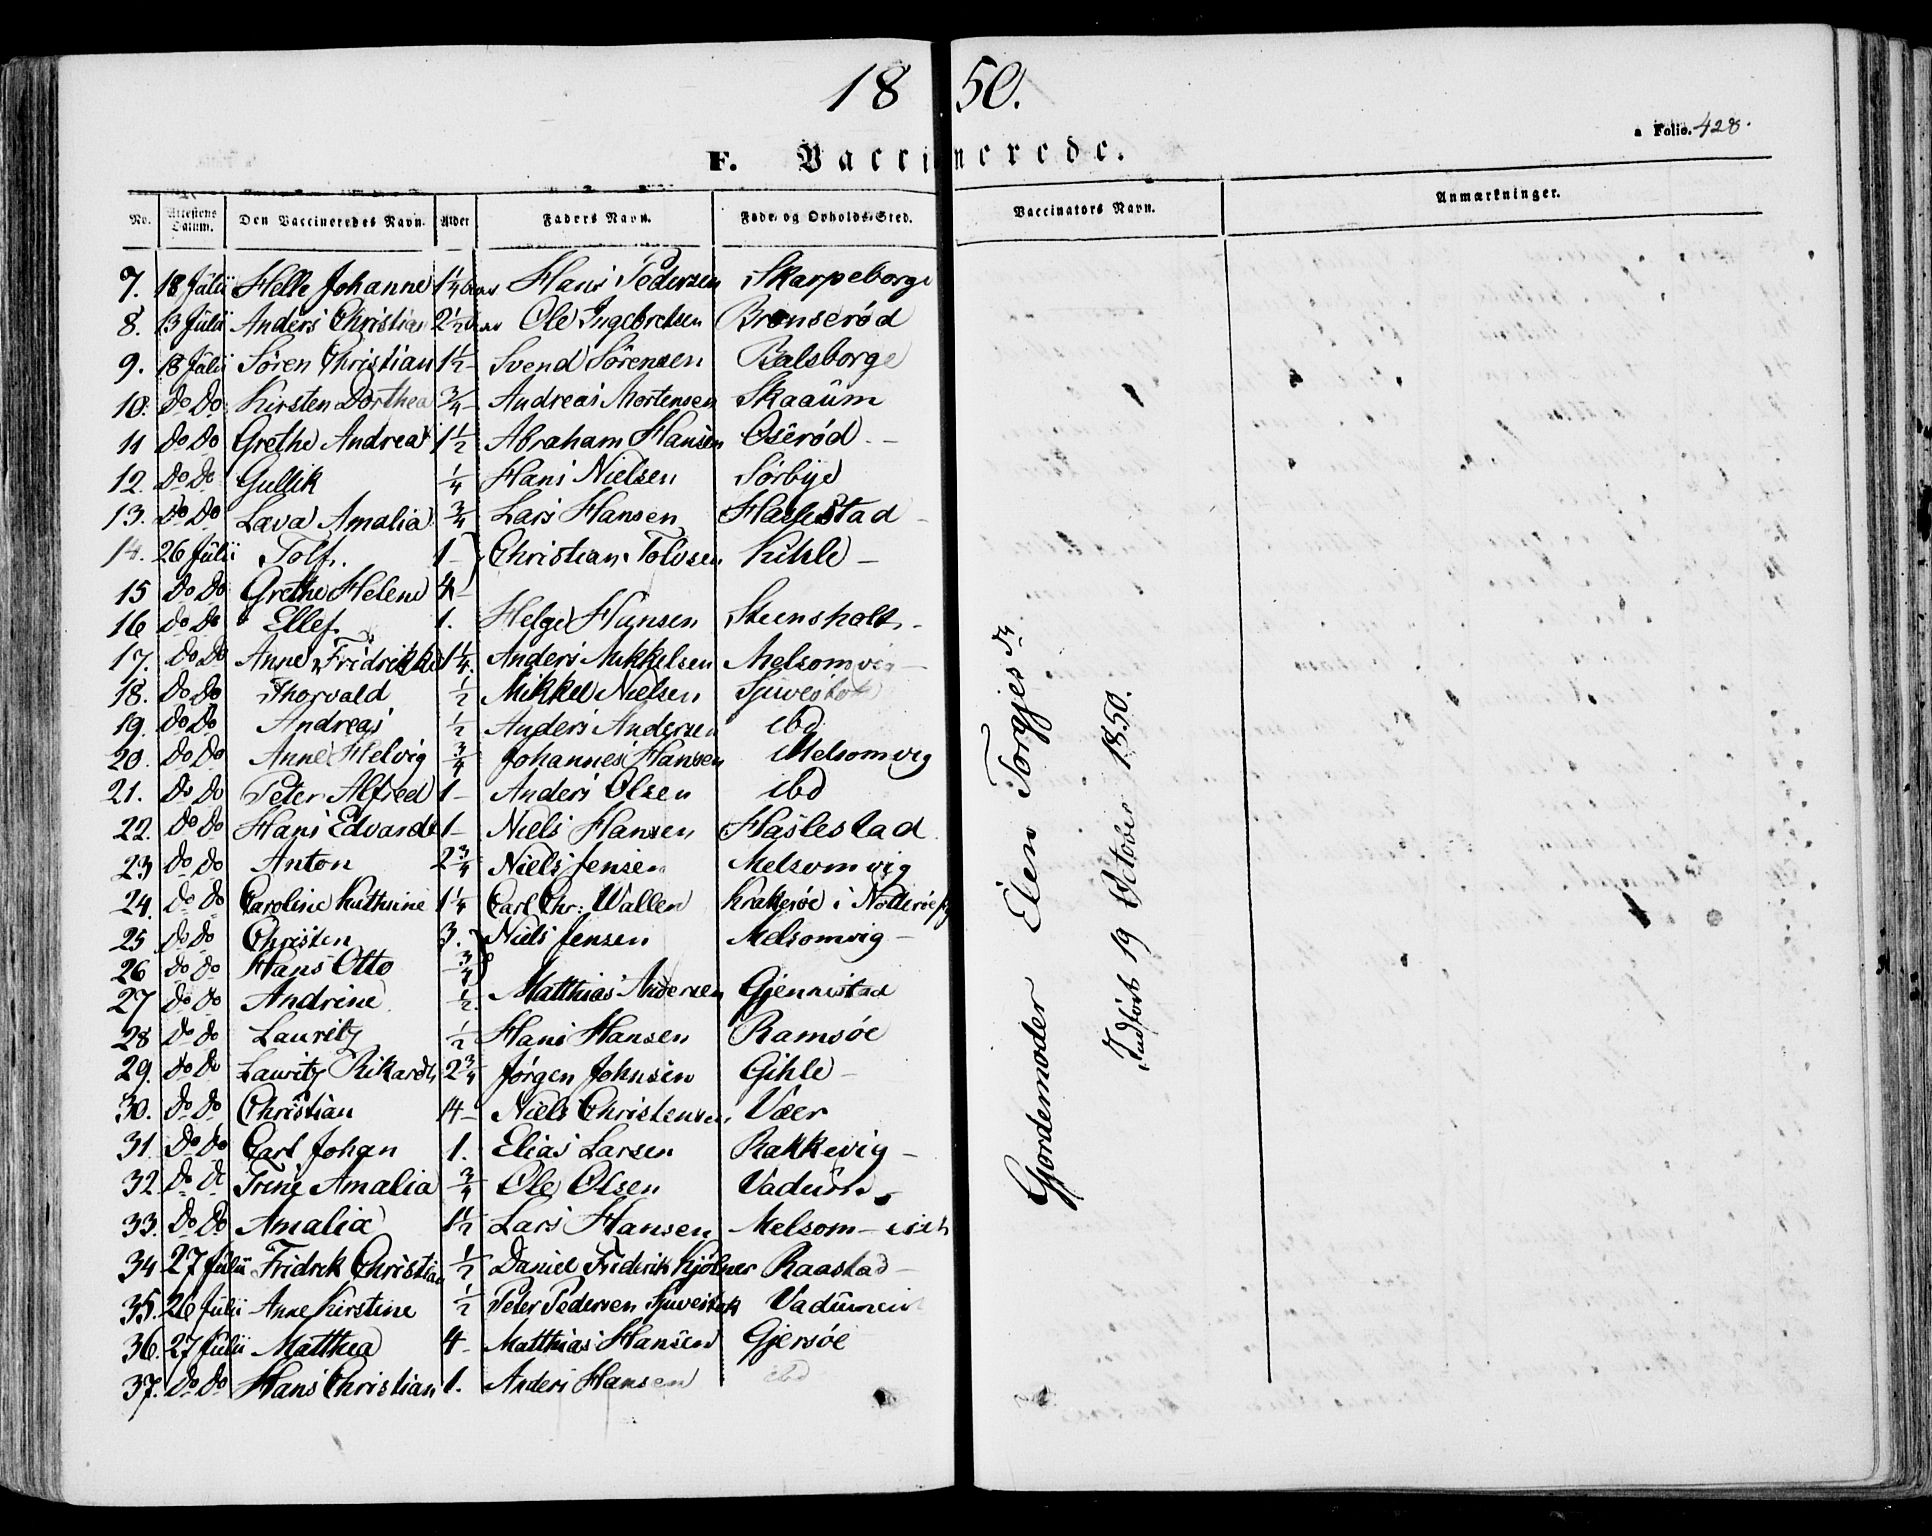 1850.
a Folio. 428.
F. Vaccinerede.
No. Attestens Datum. Den Vaccineredes Navn. Alder Faders Navn. Føde- og Opholds-Sted. Vaccinators Navn. Anmærkninger.
7. 18 Julii Helle Johanne 1 1/4 Hans Pedersen Skarpeborge
8. 13 Julii Anders Christian 2 1/2 Ole Ingebretsen Brenserød
9. 18 Julii Søren Christian 1 1/2 - Svend Sørensen Balsborge
10. Do Do Kirsten Dorthea 3/4 - Andreas Mortensen Skaaum
11 Do Do Grethe Andrea 1 1/2 Abraham Hansen Oserød -
12. Do Do Gullik 1/4 Hans Nielsen Sørbye
13. Do Do Lava Amalia 3/4 Lars Hansen Haslestad -
14. 26 Julii Tolf. 1 - Christian Tolvsen Kihle -
15 Do Do Grethe Helene 4 -
16 Do Do Ellef 1. Helge Hansen Steensholt -
17. Do Do Anne Fridrikke 1 1/4. Anders Mikkelsen Melsomvig -
18. Do Do Thorvald 1/2 Mikkel Nielsen
19. Do Do Andreas 1/2 Anders Andersen ibd
20. Do Do Anne Helvig 3/4 Johannes Hansen Melsomvig
21. Do Do Peter Alfred 1 - Anders Olsen ibd
22. Do Do Hans Edvardt 1 - Niels Hansen Haslestad
23 Do Do Anton 2 3/4 Niels Jensen Melsomvig
24. Do Do Caroline Kathrine 1 1/4 Carl Chr: Wallen Krakerøe i
25 Do Do Christen 3. Niels Jensen Melsomvig -
26 Do Do Hans Otto 3/4
27 Do Do Andrine 1/2 Matthias Andersen Gjennistad
28 Do Do Lauritz 1/2 Hans Hansen Ramsøe
29. Do Do Lauritz Rikardt 2 3/4 Jørgen Johnsen Gihle -
30. Do Do Christian 14 - Niels Christensen Væer
31. Do Do Carl Johan 1. Elias Larsen Rakkevig -
32. Do Do Trine Amalia 3/4 Ole Olsen
33. Do Do Amalia 1 1/2 Lars Hansen Melsom -
34 27 Julii Fridrik Christian 1/2 Daniel Friderik Kjølner Raastad -
35. 26 Julii Anne Kirstine 1/2 Peter Pedersen
36. 27 Julii Matthea 4 - Matthias Hansen Gjersøe
37. Do Do Hans Christian 1. Anders Hansen ibd
Gjordemoder Elen Torgjesdr
Indført 19 October 1850.